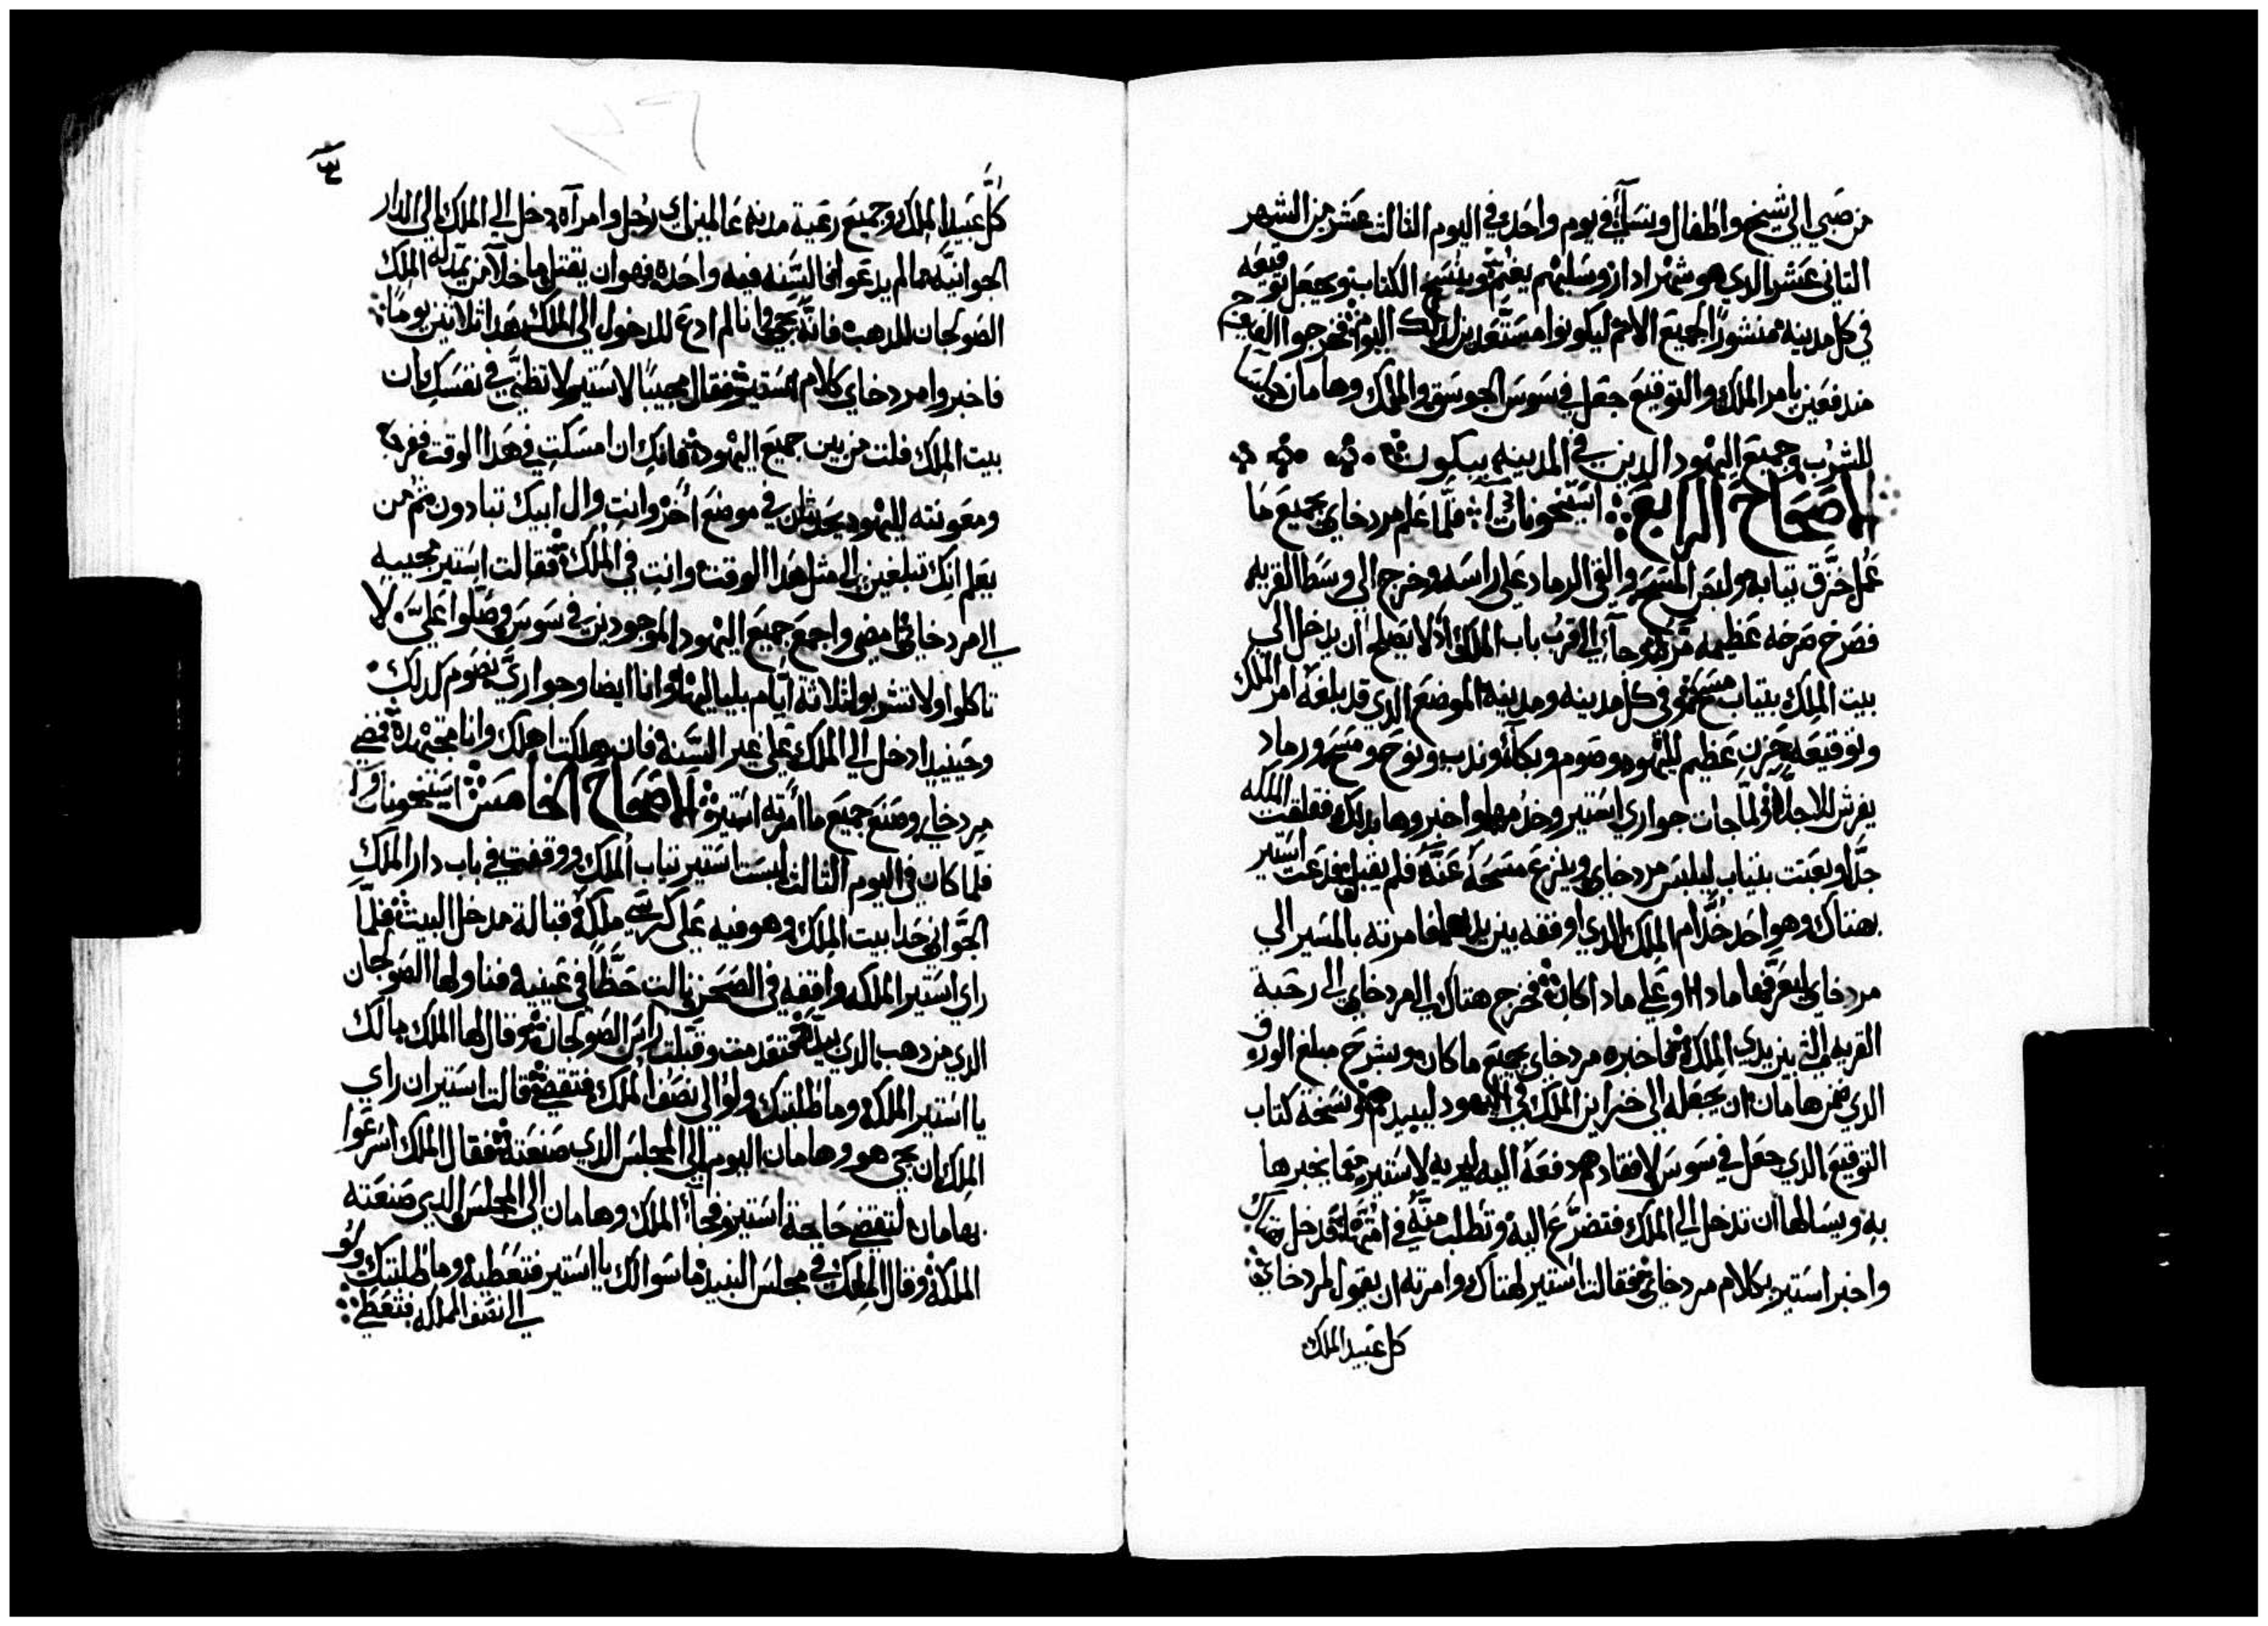 من صبي الي شيخ واطفال ونسآء في يوم واحد في اليوم الثالث عشر من الشهر
الثاني عشر الدي هو شهر ادار وسلبهم يغنم وينسخ الكتاب ويجعل توقيعه
في كل مدينه منشورا لجميع الامم ليكونوا مستعدين لدلك اليوم فخرجوا
مندفعين بامر الملك والتوقيع جعل في سوس الجوسق والملك وهامان
للشرب وجميع اليهود الدين في المدينه يبكون
الاصحاح الرابع استيخونات فلما علم مردخاي بجميع ما
عمل خرق تيابه ولبس المسح والقي الرماد علي راسه وخرج الي وسط القريه
فصرخ صرخه عظيمه مرة وجآء الي القرب باب الملك اد لا يصلح ان يدخل الي
بيت الملك بتياب مسح وفي كل مدينه ومدينه الموضع الدي قد بلغه امر الملك
وتوقيعه حزن عظيم لليهود وصوم وبكآء وندب ونوح ومسح ورماد
يفرش للاجلا ولما جات جواري استير وخدمها واخبروها بدلك فقلقت الملكه
جدا وبعتت بتياب ليلبس مردخاي وينزع مسحه عنه فلم يقبل فدعت استير
بهتاك وهو احد خدام الملك الدي اوقفه بين يديها فامرته بالمسير الي
مردخاي ليعرفها مادا وعلي مادا كان فخرج هتاك الي مردخاي الي رحبة
القريه التي بين يدي الملك فاخبره مردخاي بجميع ما كان وبشرح مبلغ الورق
الدي ضمن هامان ان يجعله الي خزاين الملك في اليهود ليبيدهم ونسخة كتاب
التوقيع الدي جعل في سوس لافقادهم دفعه اليه ليريه لاستير فيما يخبرها
به ويسالها ان تدخل الي الملك فتضرع اليه وتطلب منه في امتها فدخل هتاك
واخبر استير بكلام مردخاي فقالت استير لهتاك وامرته ان يقول لمردخاي
كل عبيد الملك
كل عبيد الملك وجميع رعية مدنه عالمين اي رجل وامرآه دخل الي الملك الي الدار
الجوانيه مما لم يدعوا فالسنه فيه واحده فهو ان يقتل ما خلا من يمد له الملك
الصولجان الدهب فانه يحيي وانا لم ادع للدخول الي الملك هدا تلاتين يوما
فاخبروا مردخاي كلام استير فقال مجيبا لاستير لا تظني في نفسك ان
بيت الملك فلت من بين جميع اليهود فانك ان امسكت في هدا الوقت ففرج
ومعونته لليهود يحدثان في موضع اخر وانت وال ابيك تبادون ثم من
يعلم انك تبلغين الي مثل هدا الوقت وانت في الملك فقالت استير مجيبه
الي مردخاي امضي واجمع جميع اليهود الموجودين في سوس وصلوا علي لا
تاكلوا ولا تشربوا تلاتة ايام بلياليها وانا ايضا وجواري نصوم كدلك
وحينيد ادخل الي الملك علي غير السنه فان هلكت اهلك وانا مجتهدة فمضي
مردخاي وصنع جميع ما امرته استير الاصحاح الخامس استيخونات
فلما كان في اليوم التالت لبست استير تياب الملك ووقفت في باب دار الملك
الجواني حدا بيت الملك وهو فيه علي كرسي ملكه قبالة مدخل البيت فلما
راي استير الملكه واقفه في الصحن نالت حظا في عينيه فناولها الصولجان
الدي من دهب الدي بيده فتقدمت وقبلت راس الصولجان وقال لها الملك مالك
يا استير الملكه وما طلبتك ولو الي نصف الملك فتقضي قالت استير ان راي
الملك ان يجي هو وهامان اليوم الي المجلس الدي صنعته فقال الملك اسرعوا
بهامان لتقضي حاجة استير فجآء الملك وهامان الي المجلس الدي صنعته
الملكه وقال الملك في مجلس النبيد ما سوالك يا استير فتعطيه وما طلبتك ولو
الي نصف المملكه فتعطي